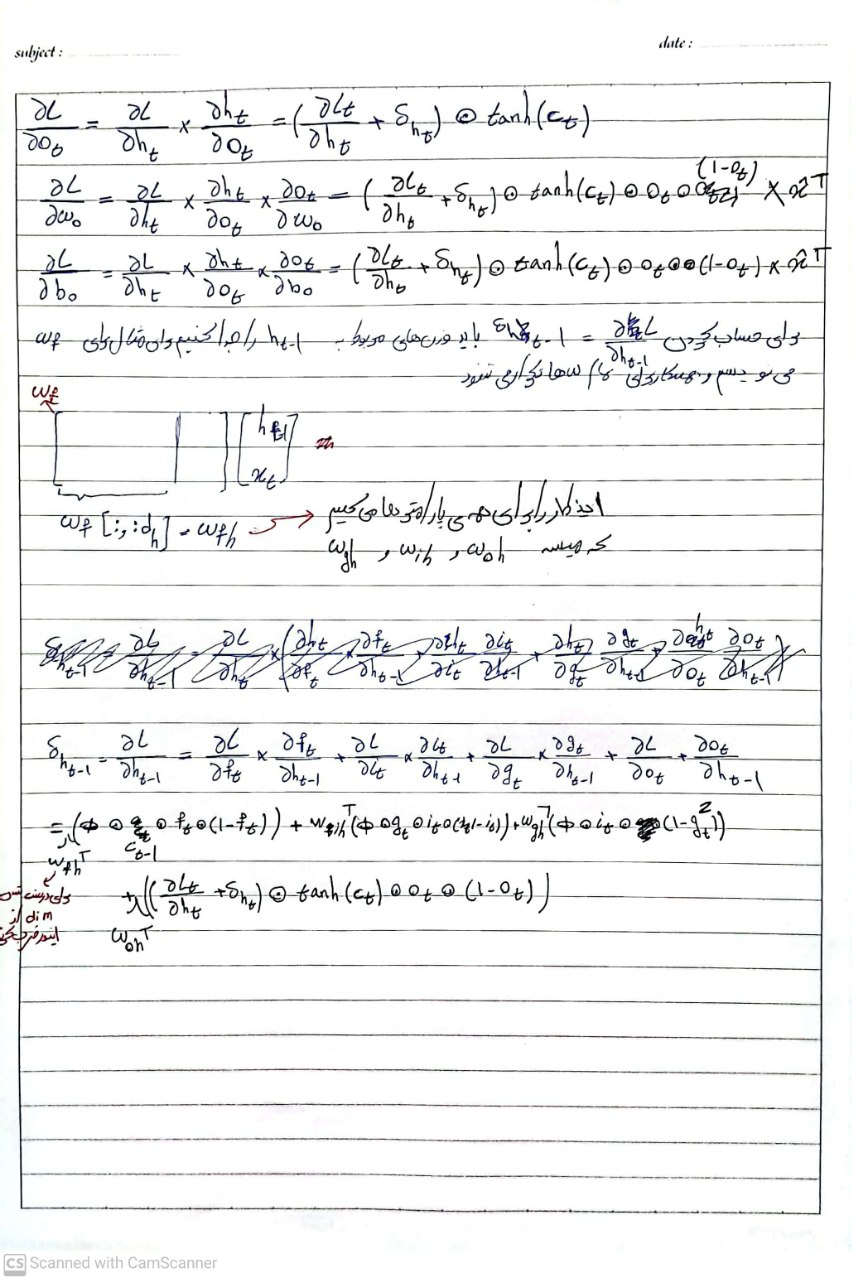 subject :
date :
∂L/∂o_t = ∂L/∂h_t × ∂h_t/∂o_t = (∂L_t/∂h_t + δ_{h_t}) ⊙ tanh(c_t)
∂L/∂w_o = ∂L/∂h_t × ∂h_t/∂o_t × ∂o_t/∂w_o = (∂L_t/∂h_t + δ_{h_t}) ⊙ tanh(c_t) ⊙ o_t ⊙ (1-o_t) × x̂^T
∂L/∂b_o = ∂L/∂h_t × ∂h_t/∂o_t × ∂o_t/∂b_o = (∂L_t/∂h_t + δ_{h_t}) ⊙ tanh(c_t) ⊙ o_t ⊙ (1-o_t) × x̂^T
برای حساب کردن ∂L/∂h_{t-1} = δ_{h_{t-1}} باید وزن‌های مربوط به h_{t-1} را جدا کنیم برای مثال برای w_f
می نویسیم و همینکار برای w ها تکرار می شود
w_f
[ | ] [h_{t-1} x_t] =
w_f [:,:d_h] = w_{fh} → این کار را برای همه ی پارامترها می کنیم
که میشه w_{oh} و w_{ih} و w_{gh}
δ_{h_{t-1}} = ∂L/∂h_{t-1} = ∂L/∂h_t × (∂h_t/∂f_t × ∂f_t/∂h_{t-1} + ∂h_t/∂i_t ∂i_t/∂h_{t-1} + ∂h_t/∂g_t ∂g_t/∂h_{t-1} + ∂h_t/∂o_t ∂o_t/∂h_{t-1})
δ_{h_{t-1}} = ∂L/∂h_{t-1} = ∂L/∂f_t × ∂f_t/∂h_{t-1} + ∂L/∂i_t × ∂i_t/∂h_{t-1} + ∂L/∂g_t × ∂g_t/∂h_{t-1} + ∂L/∂o_t + ∂o_t/∂h_{t-1}
= w_{fh}^T (ϕ ⊙ c_{t-1} ⊙ f_t ⊙ (1-f_t)) + w_{ih}^T (ϕ ⊙ g_t ⊙ i_t ⊙ (1-i_t)) + w_{gh}^T (ϕ ⊙ i_t ⊙ (1-g_t^2))
+ w_{oh}^T ((∂L_t/∂h_t + δ_{h_t}) ⊙ tanh(c_t) ⊙ o_t ⊙ (1-o_t))
برای درست
dim از
اینور ضرب
CS Scanned with CamScanner